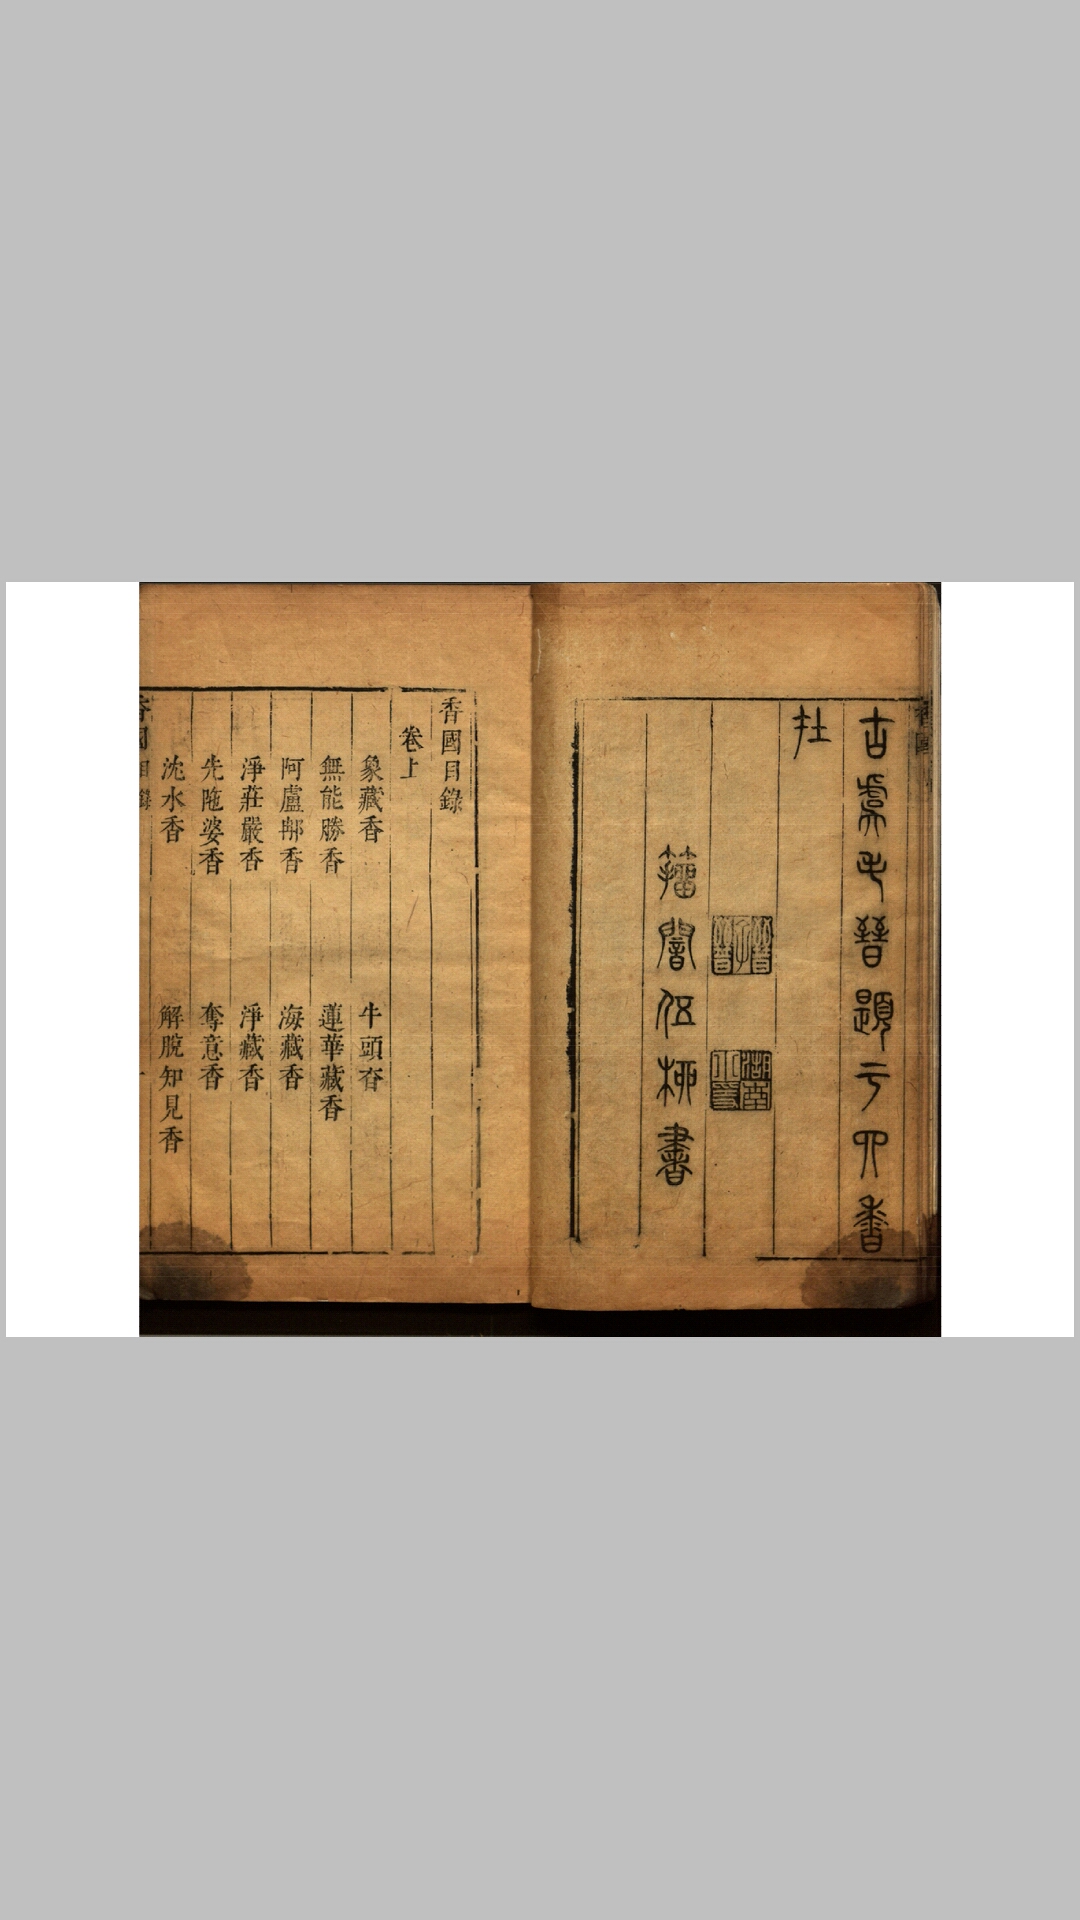 古虞毛晉題于四香
社
書
香國目錄
卷上
象藏香 牛頭香
無能勝香 蓮華藏香
阿盧那香 海藏香
淨莊嚴香 淨藏香
先陁婆香 奪意香
沈水香 解脫知見香
香國 目錄